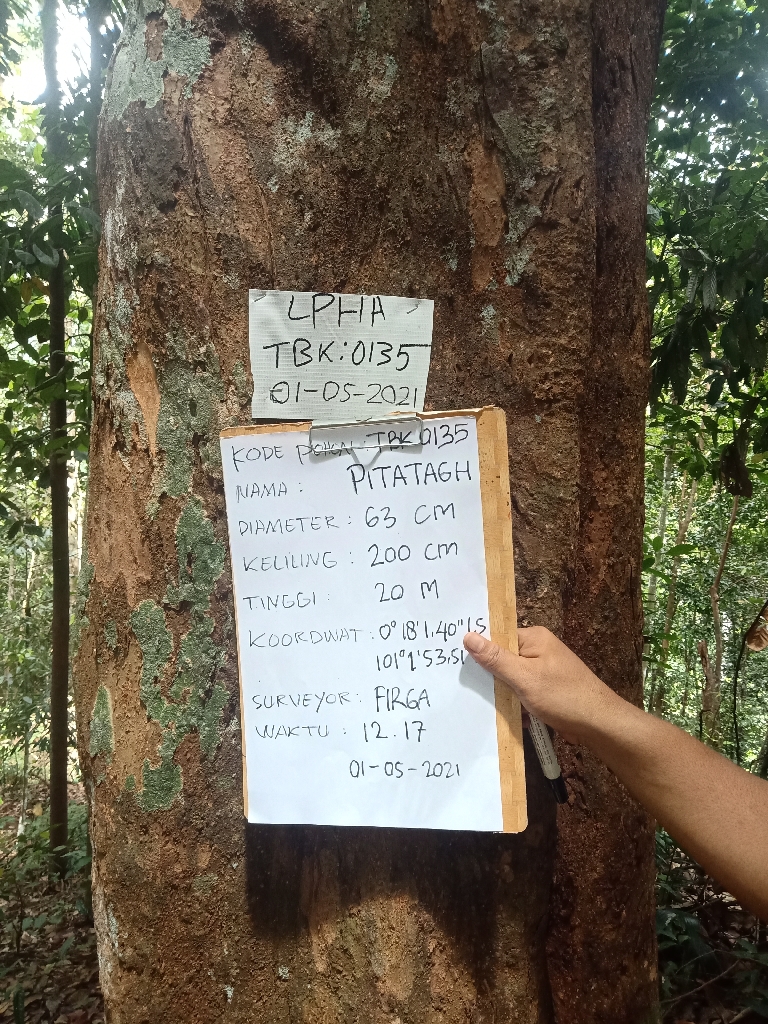 LPHA
TBK:0135
01-05-2021
KODE POHON: TBK 0135
NAMA : PITATAGH
DIAMETER : 63 CM
KELILING : 200 CM
TINGGI : 20 M
KOORDINAT : 0°18'1.40"LS
101°1'53.51
SURVEYOR : FIRGA
WAKTU : 12.17
01-05-2021